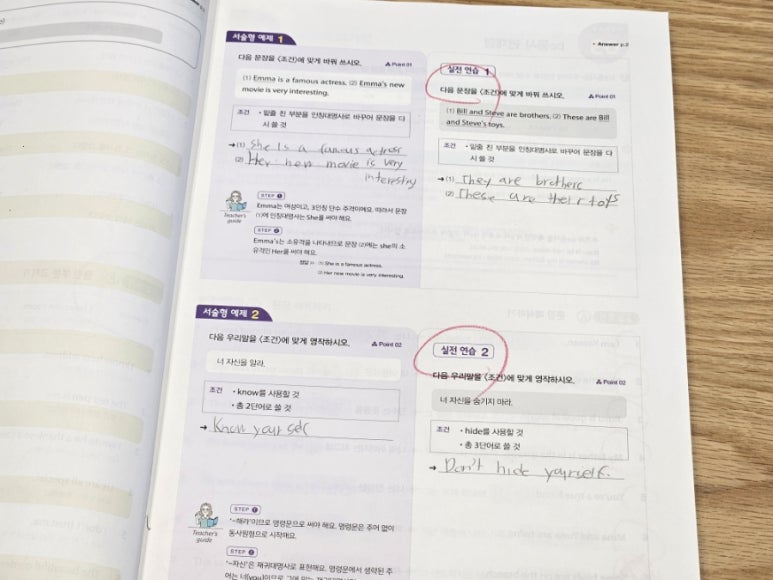 서술형 예제 1
다음 문장을 <조건>에 맞게 바꿔 쓰시오.
Point 01
(1) Emma is a famous actress. (2) Emma's new
movie is very interesting.
조건 • 밑줄 친 부분을 인칭대명사로 바꾸어 문장을 다
시 쓸 것
→ (1) She Is a famous actress
(2) Her new movie is very
STEP 1
Emma는 여성이고, 3인칭 단수 주격이에요. 따라서 문장
(1)에 인칭대명사는 She를 써야 해요.
Teacher's
guide
STEP 2
Emma's는 소유격을 나타내므로 문장 (2)에는 she의 소
유격인 Her를 써야 해요.
정답 (1) She is a famous actress.
(2) Her new movie is very interesting.
Answer p.2
실전 연습 1
다음 문장을 <조건>에 맞게 바꿔 쓰시오.
Point 01
(1) Bill and Steve are brothers. (2) These are Bill
and Steve's toys.
조건 • 밑줄 친 부분을 인칭대명사로 바꾸어 문장을 다
시 쓸 것
→ (1) They are brothers
(2) These are their toys
서술형 예제 2
다음 우리말을 <조건>에 맞게 영작하시오.
Point 02
너 자신을 알라.
조건 • know를 사용할 것
• 총 2단어로 쓸 것
→ Know your self
STEP 1
'~해라'이므로 명령문으로 써야 해요. 명령문은 주어 없이
동사원형으로 시작해요.
Teacher's
guide
STEP 2
'~자신'은 재귀대명사로 표현해요. 명령문에서 생략된 주
실전 연습 2
다음 우리말을 <조건>에 맞게 영작하시오.
Point 02
너 자신을 숨기지 마라.
조건 • hide를 사용할 것
• 총 3단어로 쓸 것
→ Don't hide yourself.